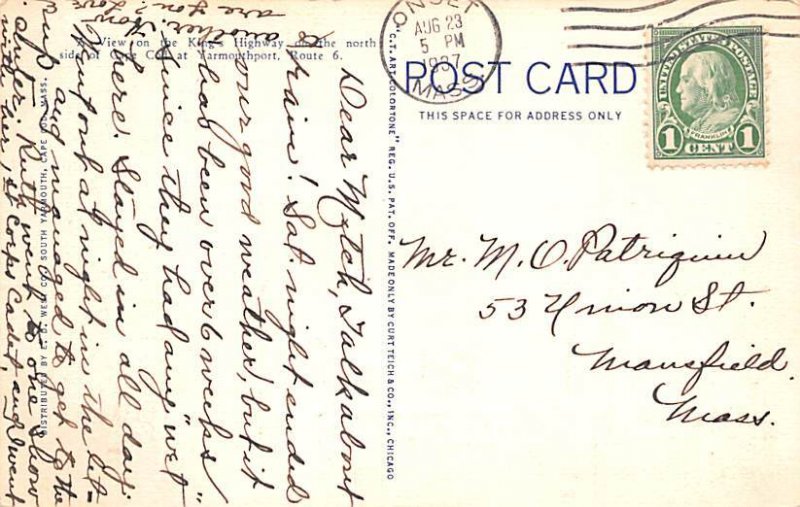 A View on the King's Highway on the north
side of Cape Cod at Yarmouthport, Route 6.
ONSET
AUG 23
5 PM
1937
MASS.
UNITED STATES POSTAGE
FRANKLIN
1 CENT 1
POST CARD
THIS SPACE FOR ADDRESS ONLY
Mr. M. O. Patriquin
53 Union St.
Mansfield
Mass.
"C.T. ART-COLORTONE" REG. U.S. PAT. OFF. MADE ONLY BY CURT TEICH & CO., INC., CHICAGO
DISTRIBUTED BY E. D. WEST CO., SOUTH YARMOUTH, CAPE COD, MASS.
Dear Mytch, Talk about
rain! Sat. night ended
our good weather, but it
has been over 6 weeks
since they had any "wet"
here. Stayed in all day.
Went out at night in the let-
up and managed to get to the
Ruth went to one show
with her, & went
another. How
are you? Love